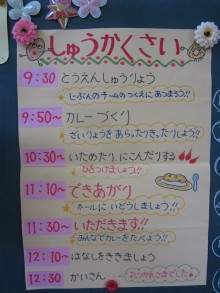 しゅうかくさい
9:30 とうえんしゅうりょう
じぶんのチームのつくえにあつまろう!!
9:50~ カレーづくり
ざいりょうをあらったり、きったりしよう!!
10:30~ いためたりにこんだりする
ひをつけましょう!!
11:10~ できあがり
ホールにいどうしましょう!!
11:30~ いただきます!!
みんなでカレーをたべよう!!
12:10~ はなしをききましょう
12:30 かいさん
おつかれさまでした